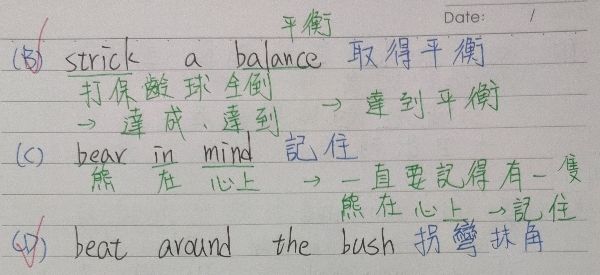 平衡
Date: /
(B) strick a balance 取得平衡
打保齡球全倒
→ 達成、達到 → 達到平衡
(C) bear in mind 記住
熊 在 心上 → 一直要記得有一隻
熊在心上 → 記住
(D) beat around the bush 拐彎抹角